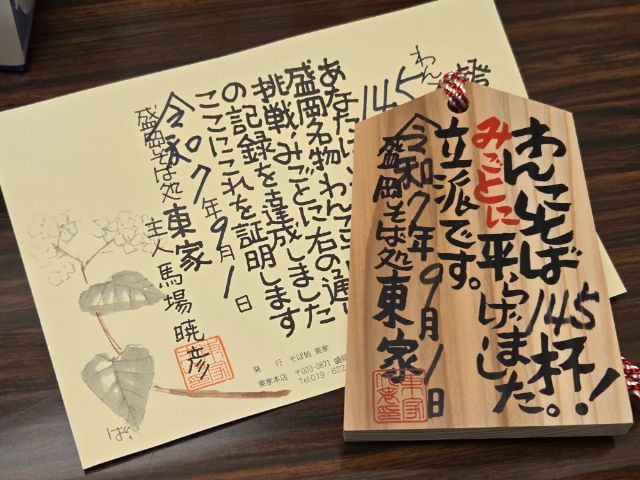 わん
145
あなたは
盛岡名物わんこ
挑戦、みごとに右の通り
の記録を達成しました
ここにこれを証明します
令和7年9月1日
盛岡そば処 東家
主人 馬場暁彦
発行 そば処 東家
東家本店 〒020-0871 盛岡
Tel.019-622
わんこそば145杯!
みごとに平らげました。
立派です。
令和7年9月1日
盛岡そば処 東家